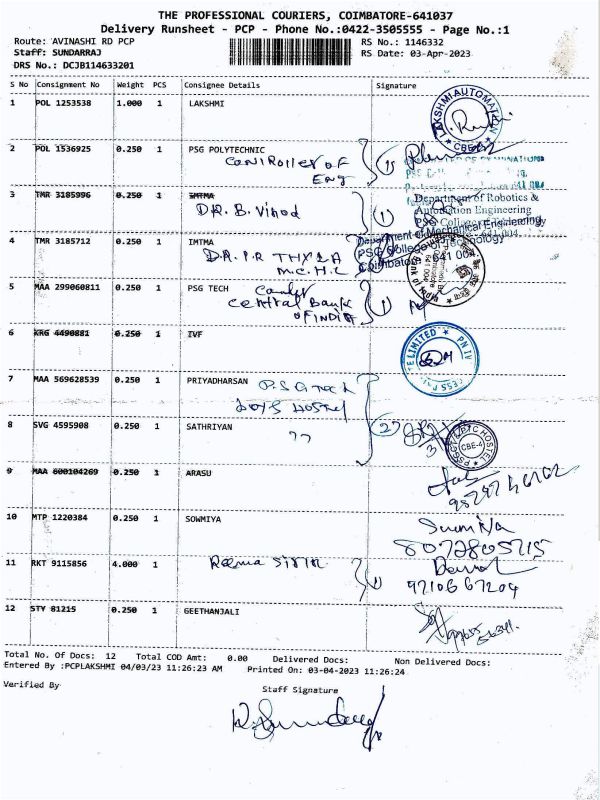 THE PROFESSIONAL COURIERS, COIMBATORE-641037
Delivery Runsheet - PCP - Phone No.:0422-3505555 - Page No.:1
Route: AVINASHI RD PCP RS No.: 1146332
Staff: SUNDARRAJ RS Date: 03-Apr-2023
DRS No.: DCJB114633201
S No Consignment No Weight PCS Consignee Details Signature
1 POL 1253538 1.000 1 LAKSHMI
LAKSHMI AUTOMATION
2 POL 1536925 0.250 1 PSG POLYTECHNIC
Controller of
Eng
3 TMR 3185996 0.250 1 IMTMA
DR. B. Vinod
Department of Robotics &
Automation Engineering
PSG College of Technology
4 TMR 3185712 0.250 1 IMTMA
Department of Mechanical Engineering
PSG College of Technology
Coimbatore - 641 004
5 MAA 299060811 0.250 1 PSG TECH
Central Bank
of INDIA
6 KRG 4490881 0.250 1 IVF
7 MAA 569628539 0.250 1 PRIYADHARSAN P.S.G Tech
Boys HOSTEL
8 SVG 4595908 0.250 1 SATHRIYAN
CBE-4
9 MAA 600104269 0.250 1 ARASU
10 MTP 1220384 0.250 1 SOWMIYA
8072805715
11 RKT 9115856 4.000 1
12 STY 81215 0.250 1 GEETHANJALI
Total No. Of Docs: 12 Total COD Amt: 0.00 Delivered Docs: Non Delivered Docs:
Entered By :PCPLAKSHMI 04/03/23 11:26:23 AM Printed On: 03-04-2023 11:26:24
Verified By
Staff Signature